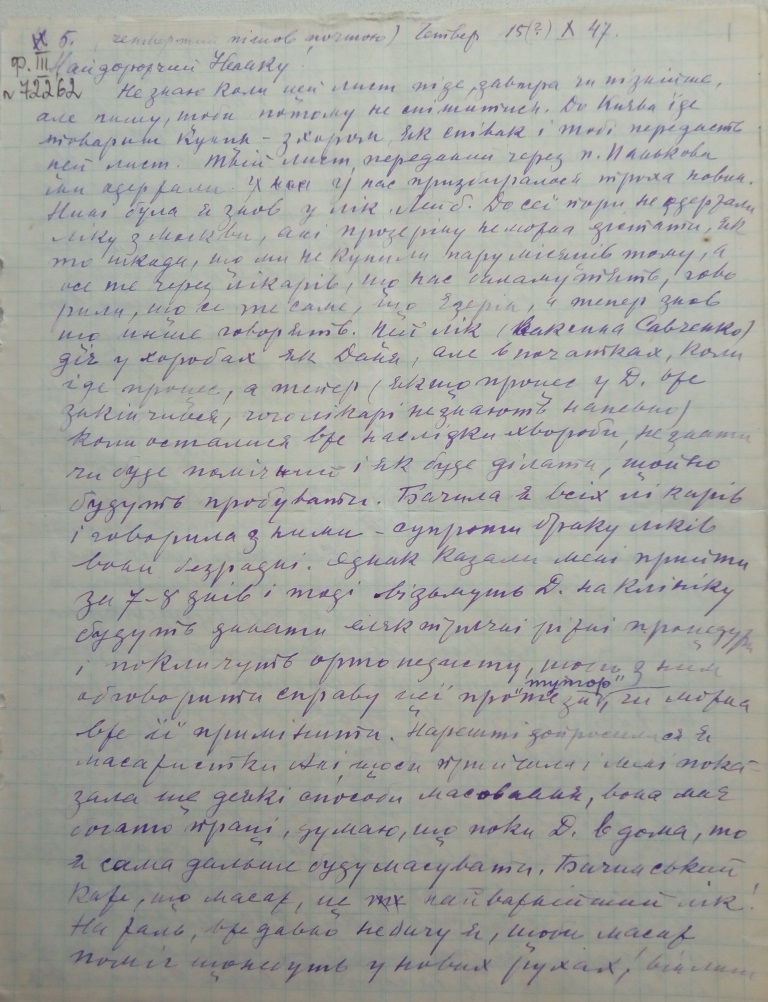 № 5. (четвертий писмов почтою) Четвер 15(?) X 47.
ф. III
Найдорожчий Ненику
№ 72262
Не знаю коли цей лист піде, завтра чи пізнійше,
але пишу, щоби потому не спішитись. До Києва їде
товариш Кунин – з хором, як співак і тобі передасть
цей лист. Твій лист, переданий через п. Панькова
ми одержали. У нас призбиралося троха новин.
Нині була я знов у лік. Досі пори не одержали
ліку з Москви, ані прозеріну не можна дістати, як
то шкода, що ми не купили пару місяців тому, а
все те через лікарів, що нас баламутять, гово
рили, що се те саме, що Езерін, а тепер знов
що инше говорять. Цей лік (Ваксина Савченко)
діє у хоробах як Даня, але в початках, коли
іде процес, а тепер (якщо процес у Д. вже
закінчився, чого лікарі не знають напевно)
коли осталися вже наслідки хвороби, не знати
чи буде помічний і як буде ділати, щойно
будуть пробувати. Бачила я всіх лікарів
і говорила з ними – супроти браку ліків
вони безрадні. Однак казали мені прийти
за 7-8 днів і тоді візьмуть Д. на клініку
будуть давати електричні ріжні процедури
і покличуть ортопедисту, щоб з ним
"тутор"
обговорити справу цеї протезии, чи можна
вже її примінити. Нарешті допросилася я
масажистки Ані, щоби прийшла і мені пока-
зала ще деякі способи масовання, вона має
богато праці, думаю, що поки Д. вдома, то
я сама дальше буду масувати. Бачинський
каже, що масаж, це найважнійший лік!
На жаль, вже давно не бачу я, щоби масаж
поміг щонебудь у нових рухах!